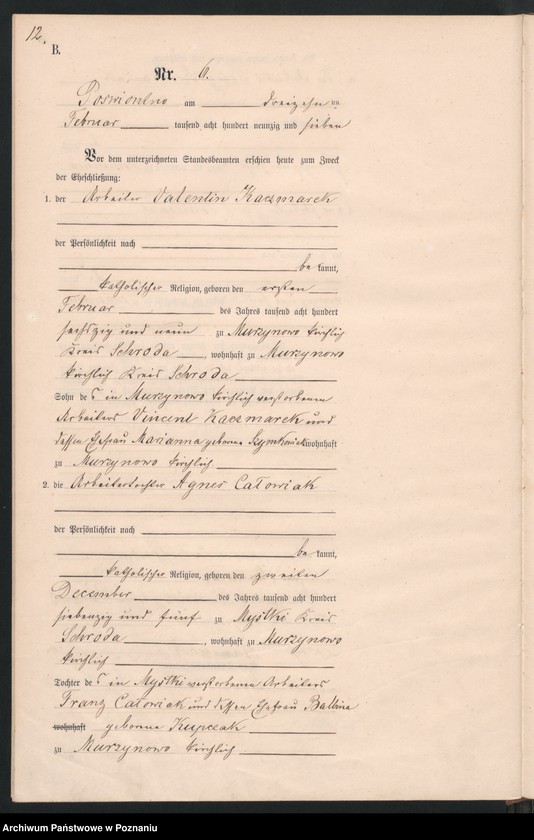 12.
B.
Nr. 6.
am dreizehnten
Februar tausend acht hundert neunzig und sieben
Vor dem unterzeichneten Standesbeamten erschien heute zum Zweck
der Eheschließung:
1. der Arbeiter Valentin Kaczmarek
der Persönlichkeit nach
be kannt,
katholischer Religion, geboren den ersten
Februar des Jahres tausend acht hundert
sechszig und neun zu Murzynowo kirchlich
Kreis Schroda, wohnhaft zu Murzynowo
kirchlich Kreis Schroda
Sohn des in Murzynowo kirchlich verstorbenen
Arbeiters Vincent Kaczmarek und
dessen Ehefrau Marianna geborene wohnhaft
zu Murzynowo kirchlich
2. die Arbeitertochter Agnes Catowiak
der Persönlichkeit nach
be kannt,
katholischer Religion, geboren den zweiten
December des Jahres tausend acht hundert
siebenzig und fünf zu Mystki Kreis
Schroda, wohnhaft zu Murzynowo
kirchlich
Tochter des in Mystki verstorbenen Arbeiters
Franz Catowiak und dessen Ehefrau Balbina
wohnhaft geborene Kupczak
zu Murzynowo kirchlich
Archiwum Państwowe w Poznaniu